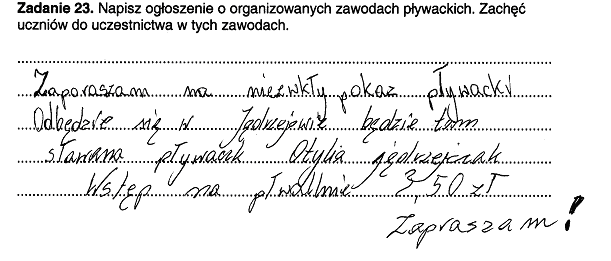 Zadanie 23. Napisz ogłoszenie o organizowanych zawodach pływackich. Zachęć
uczniów do uczestnictwa w tych zawodach.
Zaporaszam na niezwkły pokaz pływacki
Odbędzie się w Jędrzejewie będzie tam
sławna pływaczk Otylia jędrzejczak
Wstęp na pływallnie 3,50 zł
Zapraszam!